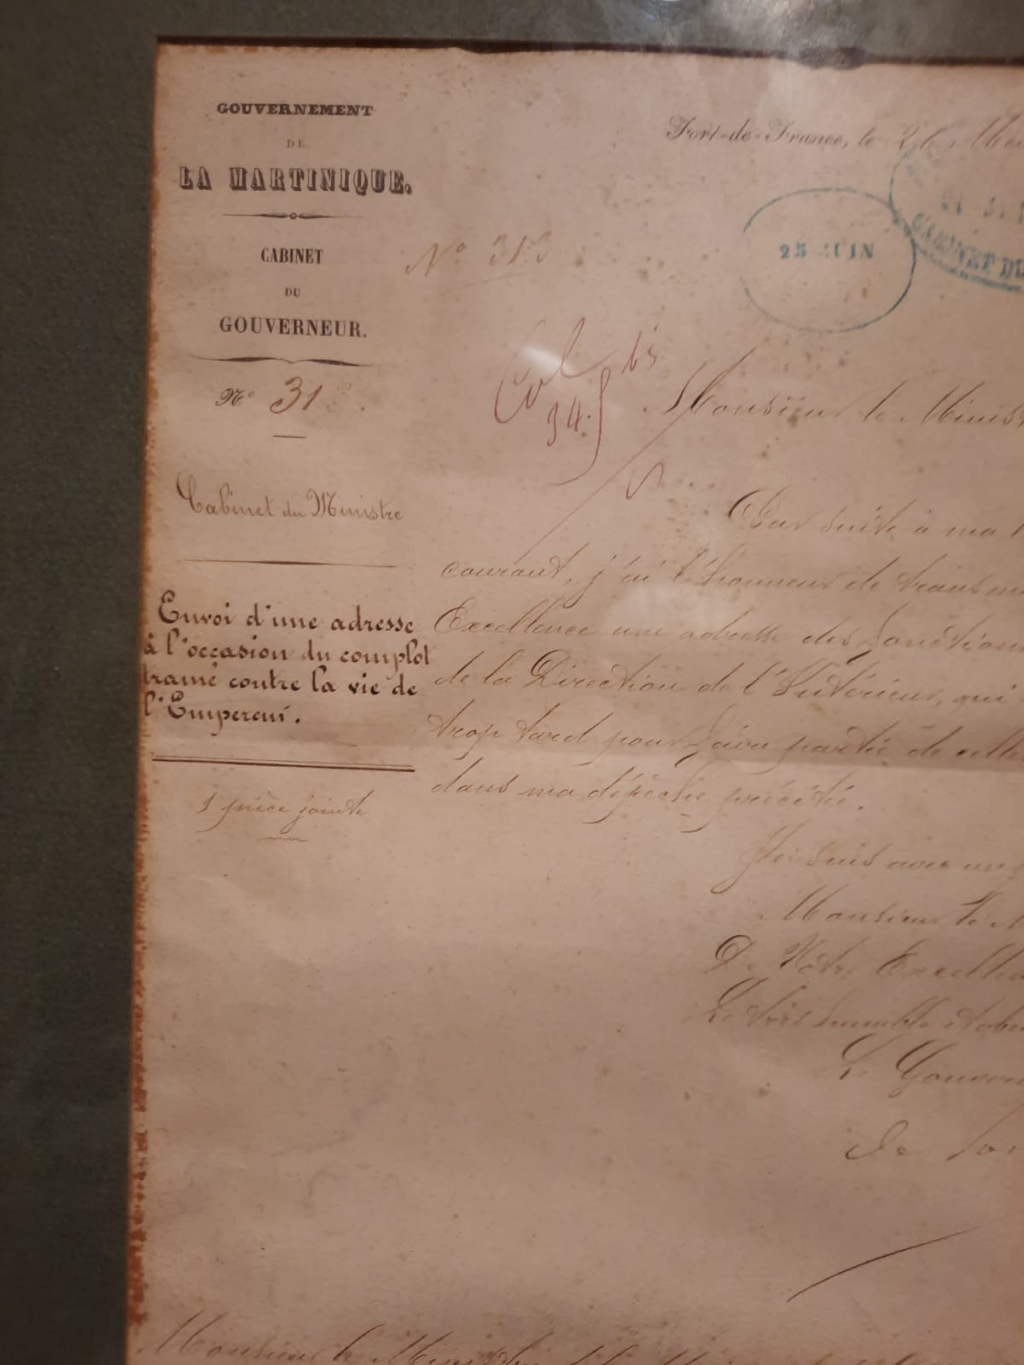 GOUVERNEMENT
DE
LA MARTINIQUE.
CABINET
DU
GOUVERNEUR.
Nº 313.
Cabinet du Ministre
Envoi d'une adresse
à l'occasion du complot
tramé contre la vie de
l'Empereur.
1 pièce jointe
Fort-de-France, le 26 Mai
Nº 313
25 JUIN
CABINET DU
Col 34 bis
Monsieur le Minis
Par suite à ma
courant, j'ai l'honneur de transm
Excellence une adresse des fonction
de la Direction de l'Intérieur, qui
trop tard pour faire partie de celles
dans ma dépêche précitée.
Je suis avec un
Monsieur le M
De Votre Excellen
Le très humble et obé
Le Gouver
de
Monsieur le Ministre